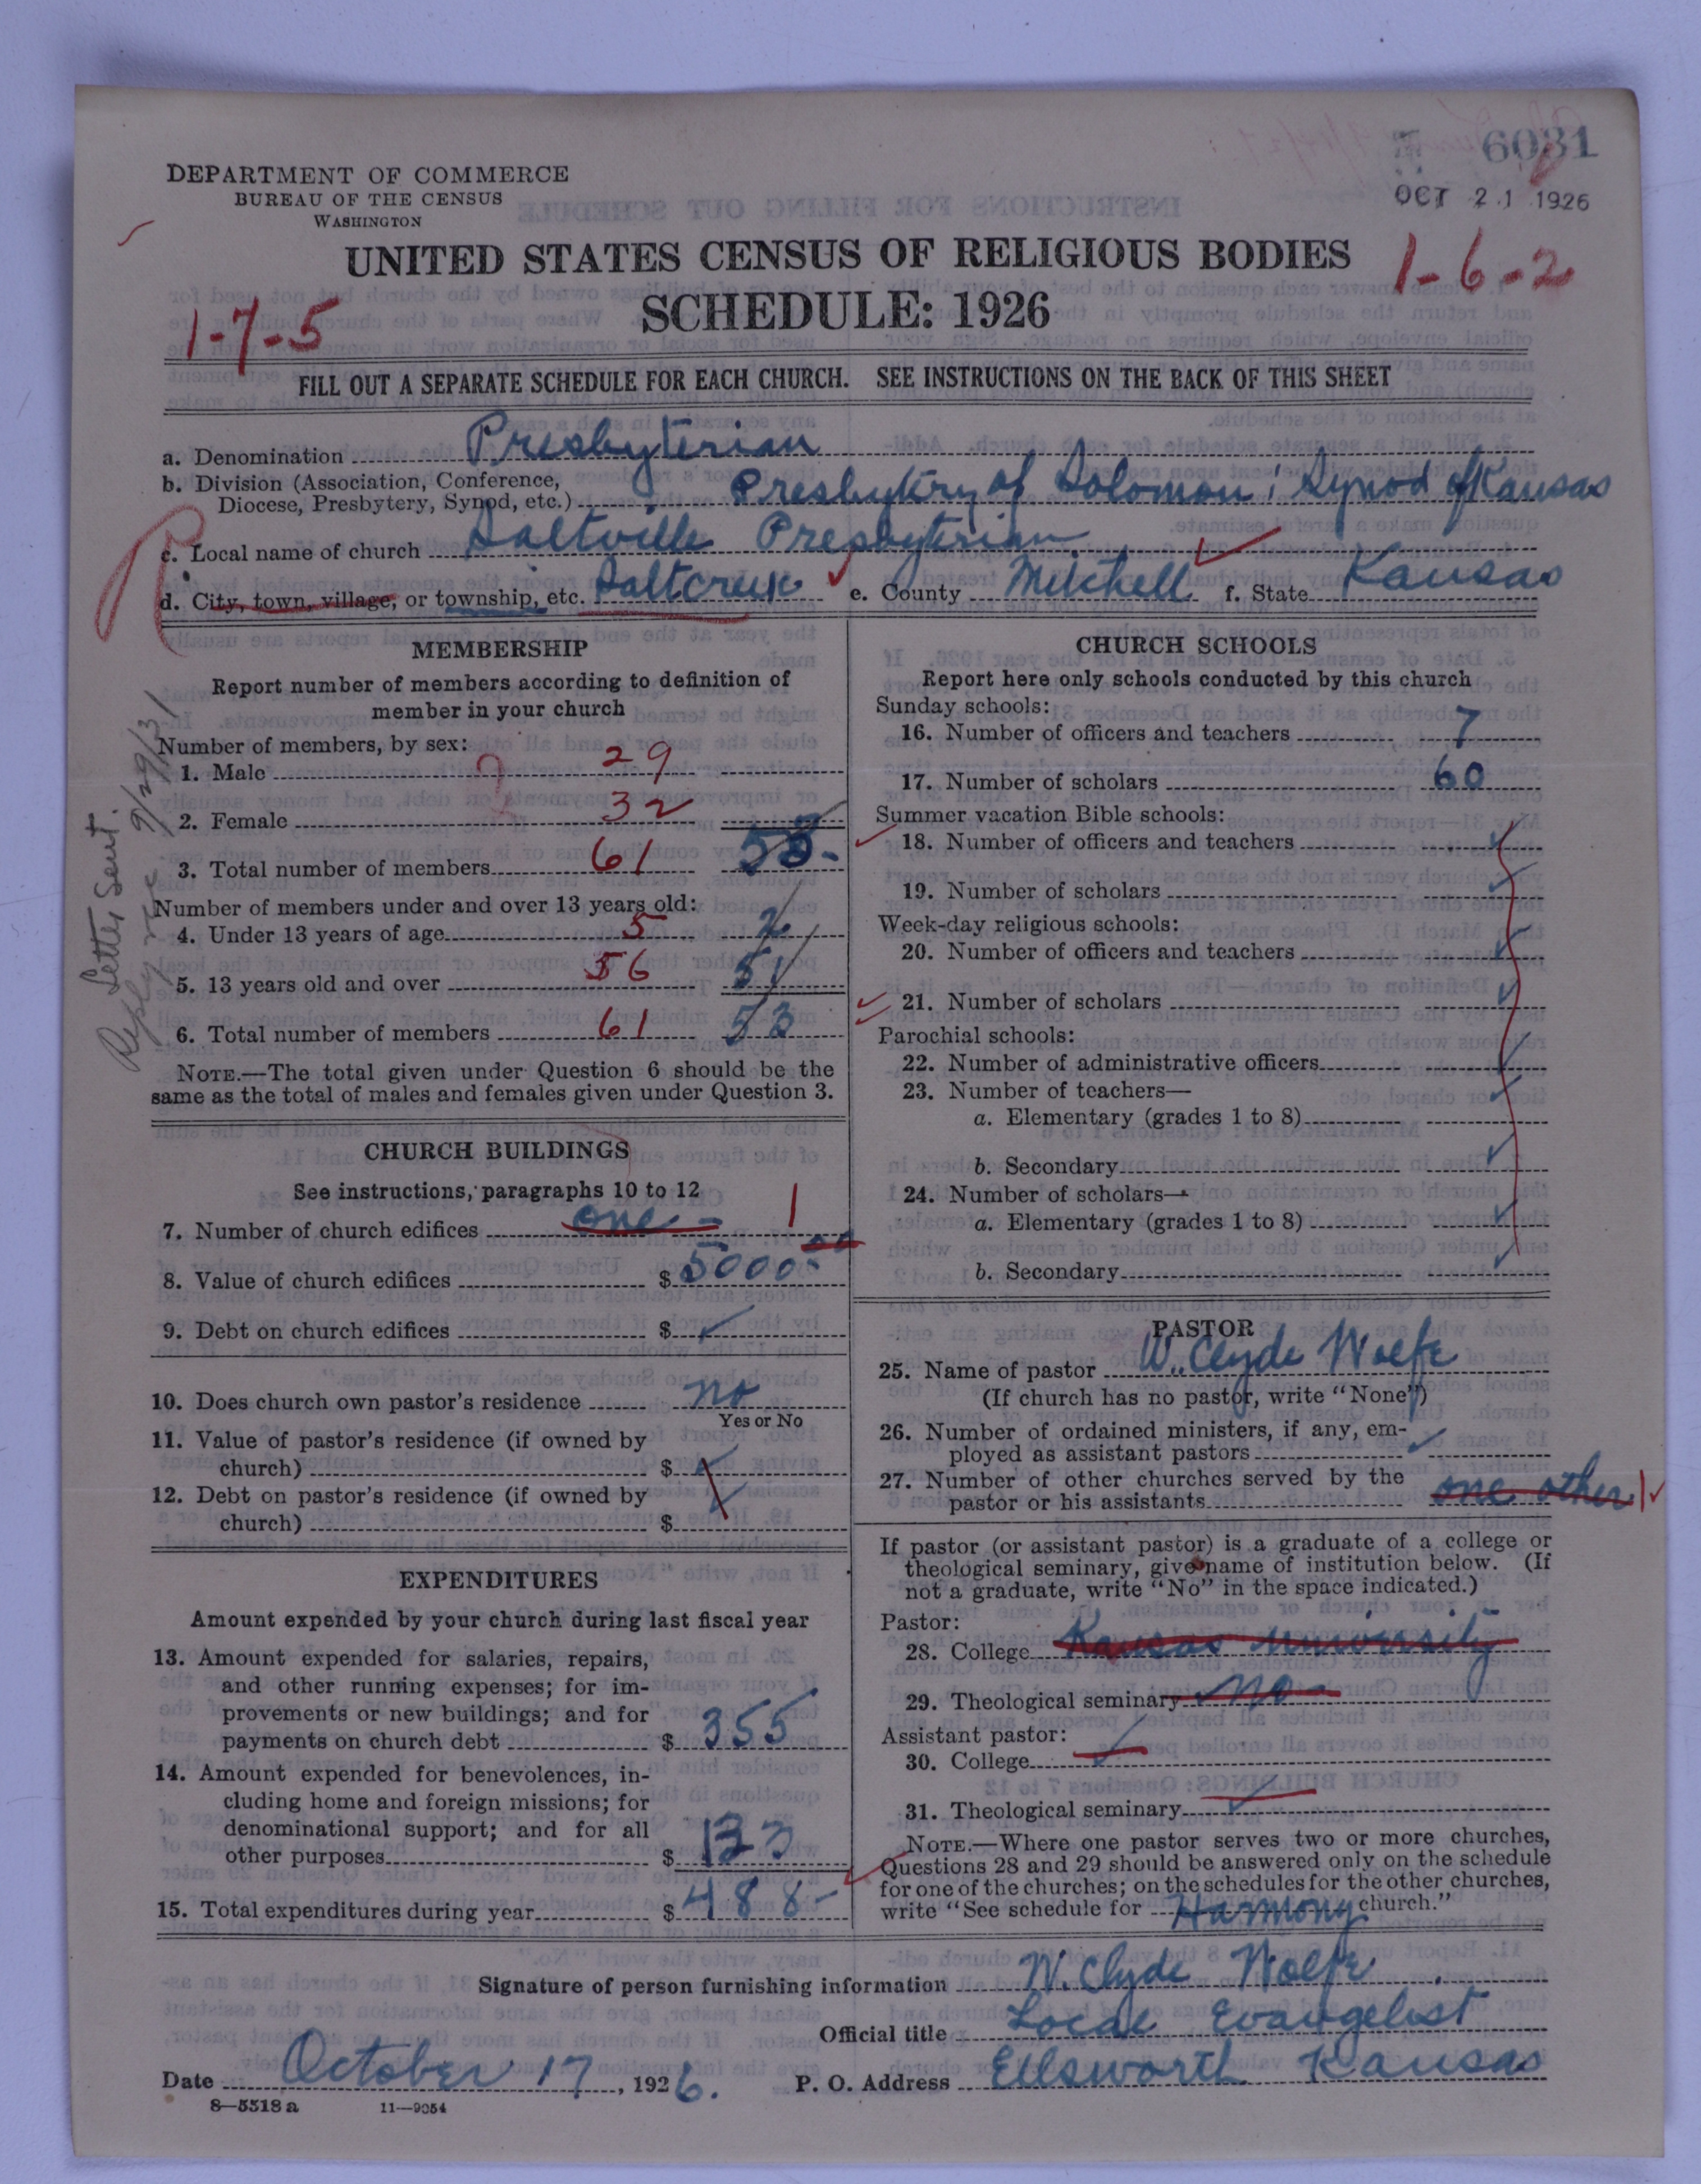 6031
OCT 21 1926
DEPARTMENT OF COMMERCE
BUREAU OF THE CENSUS
WASHINGTON
UNITED STATES CENSUS OF RELIGIOUS BODIES
1-6-2
SCHEDULE: 1926
1-7-5
FILL OUT A SEPARATE SCHEDULE FOR EACH CHURCH. SEE INSTRUCTIONS ON THE BACK OF THIS SHEET
a. Denomination Presbyterian
b. Division (Association, Conference,
Diocese, Presbytery, Synod, etc.) Presbytery of Solomon; Synod of Kansas
c. Local name of church Saltville Presbyterian
d. City, town, village, or township, etc. Saltcreek e. County Mitchell f. State Kansas
Letter Sent. 9/29/31
Reply rec
MEMBERSHIP
Report number of members according to definition of
member in your church
Number of members, by sex:
1. Male ? 29
2. Female 32
3. Total number of members 61 53.
Number of members under and over 13 years old:
4. Under 13 years of age 5 2
5. 13 years old and over 56 51
6. Total number of members 61 53
NOTE.—The total given under Question 6 should be the
same as the total of males and females given under Question 3.
CHURCH BUILDINGS
See instructions, paragraphs 10 to 12
7. Number of church edifices one - 1
8. Value of church edifices $ 5000.00
9. Debt on church edifices $ ✓
10. Does church own pastor's residence no
Yes or No
11. Value of pastor's residence (if owned by
church) $ ✓
12. Debt on pastor's residence (if owned by
church) $ ✓
EXPENDITURES
Amount expended by your church during last fiscal year
13. Amount expended for salaries, repairs,
and other running expenses; for im-
provements or new buildings; and for
payments on church debt $ 355
14. Amount expended for benevolences, in-
cluding home and foreign missions; for
denominational support; and for all
other purposes $ 133
15. Total expenditures during year $ 488-
CHURCH SCHOOLS
Report here only schools conducted by this church
Sunday schools:
16. Number of officers and teachers 7
17. Number of scholars 60
Summer vacation Bible schools:
18. Number of officers and teachers ✓
19. Number of scholars ✓
Week-day religious schools:
20. Number of officers and teachers ✓
21. Number of scholars ✓
Parochial schools:
22. Number of administrative officers ✓
23. Number of teachers—
a. Elementary (grades 1 to 8) ✓
b. Secondary ✓
24. Number of scholars—
a. Elementary (grades 1 to 8) ✓
b. Secondary ✓
PASTOR
25. Name of pastor W. Clyde Wolfe
(If church has no pastor, write "None")
26. Number of ordained ministers, if any, em-
ployed as assistant pastors ✓
27. Number of other churches served by the
pastor or his assistants one other 1 ✓
If pastor (or assistant pastor) is a graduate of a college or
theological seminary, give name of institution below. (If
not a graduate, write "No" in the space indicated.)
Pastor:
28. College Kansas University
29. Theological seminary no
Assistant pastor:
30. College ✓
31. Theological seminary ✓
NOTE.—Where one pastor serves two or more churches,
Questions 28 and 29 should be answered only on the schedule
for one of the churches; on the schedules for the other churches,
write "See schedule for Harmony church."
Signature of person furnishing information W. Clyde Wolfe
Official title Local Evangelist
Date October 17, 1926. P. O. Address Ellsworth Kansas
8—5518 a 11—9054